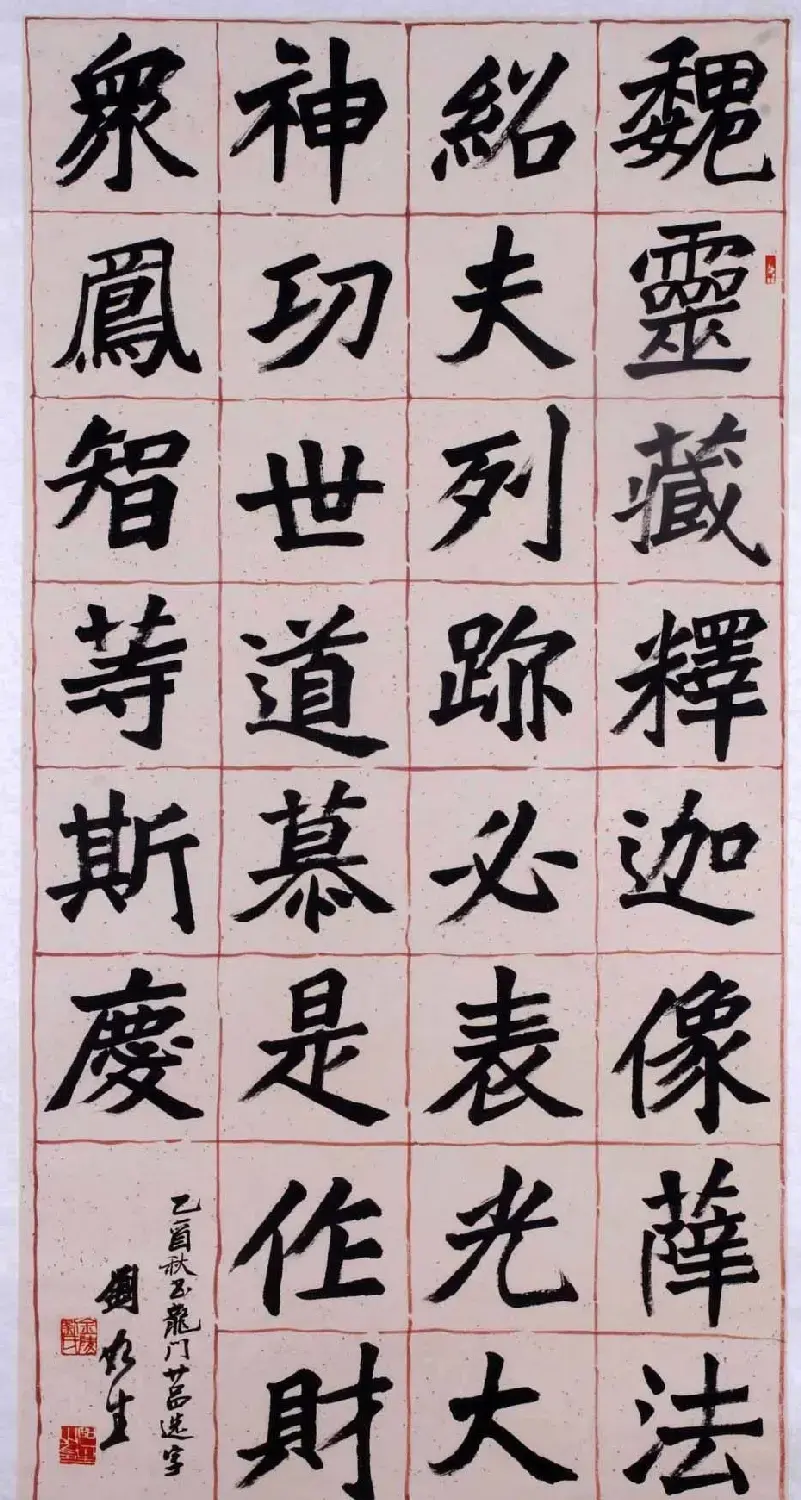 魏靈藏釋迦像薛法
紹夫列跡必表光大
神功世道慕是作財
衆鳳智等斯慶
乙酉秋書龍门廿品选字
劉
生